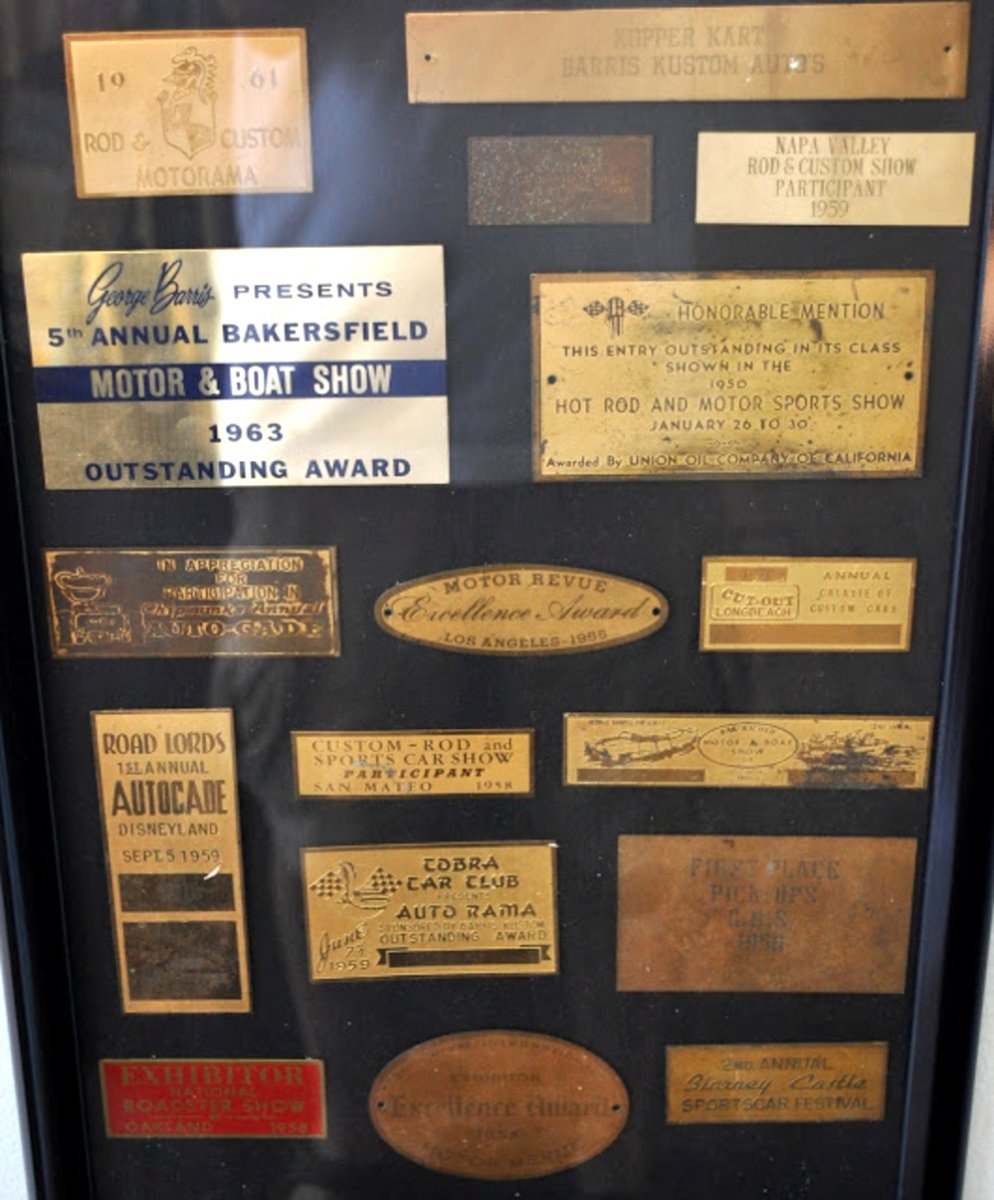 19 61
ROD & CUSTOM
MOTORAMA
KOPPER KART
BARRIS KUSTOM AUTO'S
NAPA VALLEY
ROD & CUSTOM SHOW
PARTICIPANT
1959
George Barris PRESENTS
5th ANNUAL BAKERSFIELD
MOTOR & BOAT SHOW
1963
OUTSTANDING AWARD
HONORABLE MENTION
THIS ENTRY OUTSTANDING IN ITS CLASS
SHOWN IN THE
1950
HOT ROD AND MOTOR SPORTS SHOW
JANUARY 26 TO 30
Awarded By UNION OIL COMPANY OF CALIFORNIA
IN APPRECIATION
FOR
PARTICIPATION IN
Annual
AUTO-CADE
MOTOR REVUE
Excellence Award
LOS ANGELES-1955
ANNUAL
CUT-OUT
LONGBEACH
CUSTOM CARS
ROAD LORDS
1ST ANNUAL
AUTOCADE
DISNEYLAND
SEPT. 5 1959
CUSTOM-ROD and
SPORTS CAR SHOW
PARTICIPANT
SAN MATEO 1958
MOTOR & BOAT
SHOW
COBRA
CAR CLUB
PRESENTS
AUTO RAMA
SPONSORED BY BARRIS KUSTOM
OUTSTANDING AWARD
June
1959
FIRST PLACE
PICK-UPS
EXHIBITOR
NATIONAL
ROADSTER SHOW
OAKLAND 1958
EXHIBITOR
Excellence Award
MOTOR REVUE
2ND ANNUAL
Blarney Castle
SPORTSCAR FESTIVAL